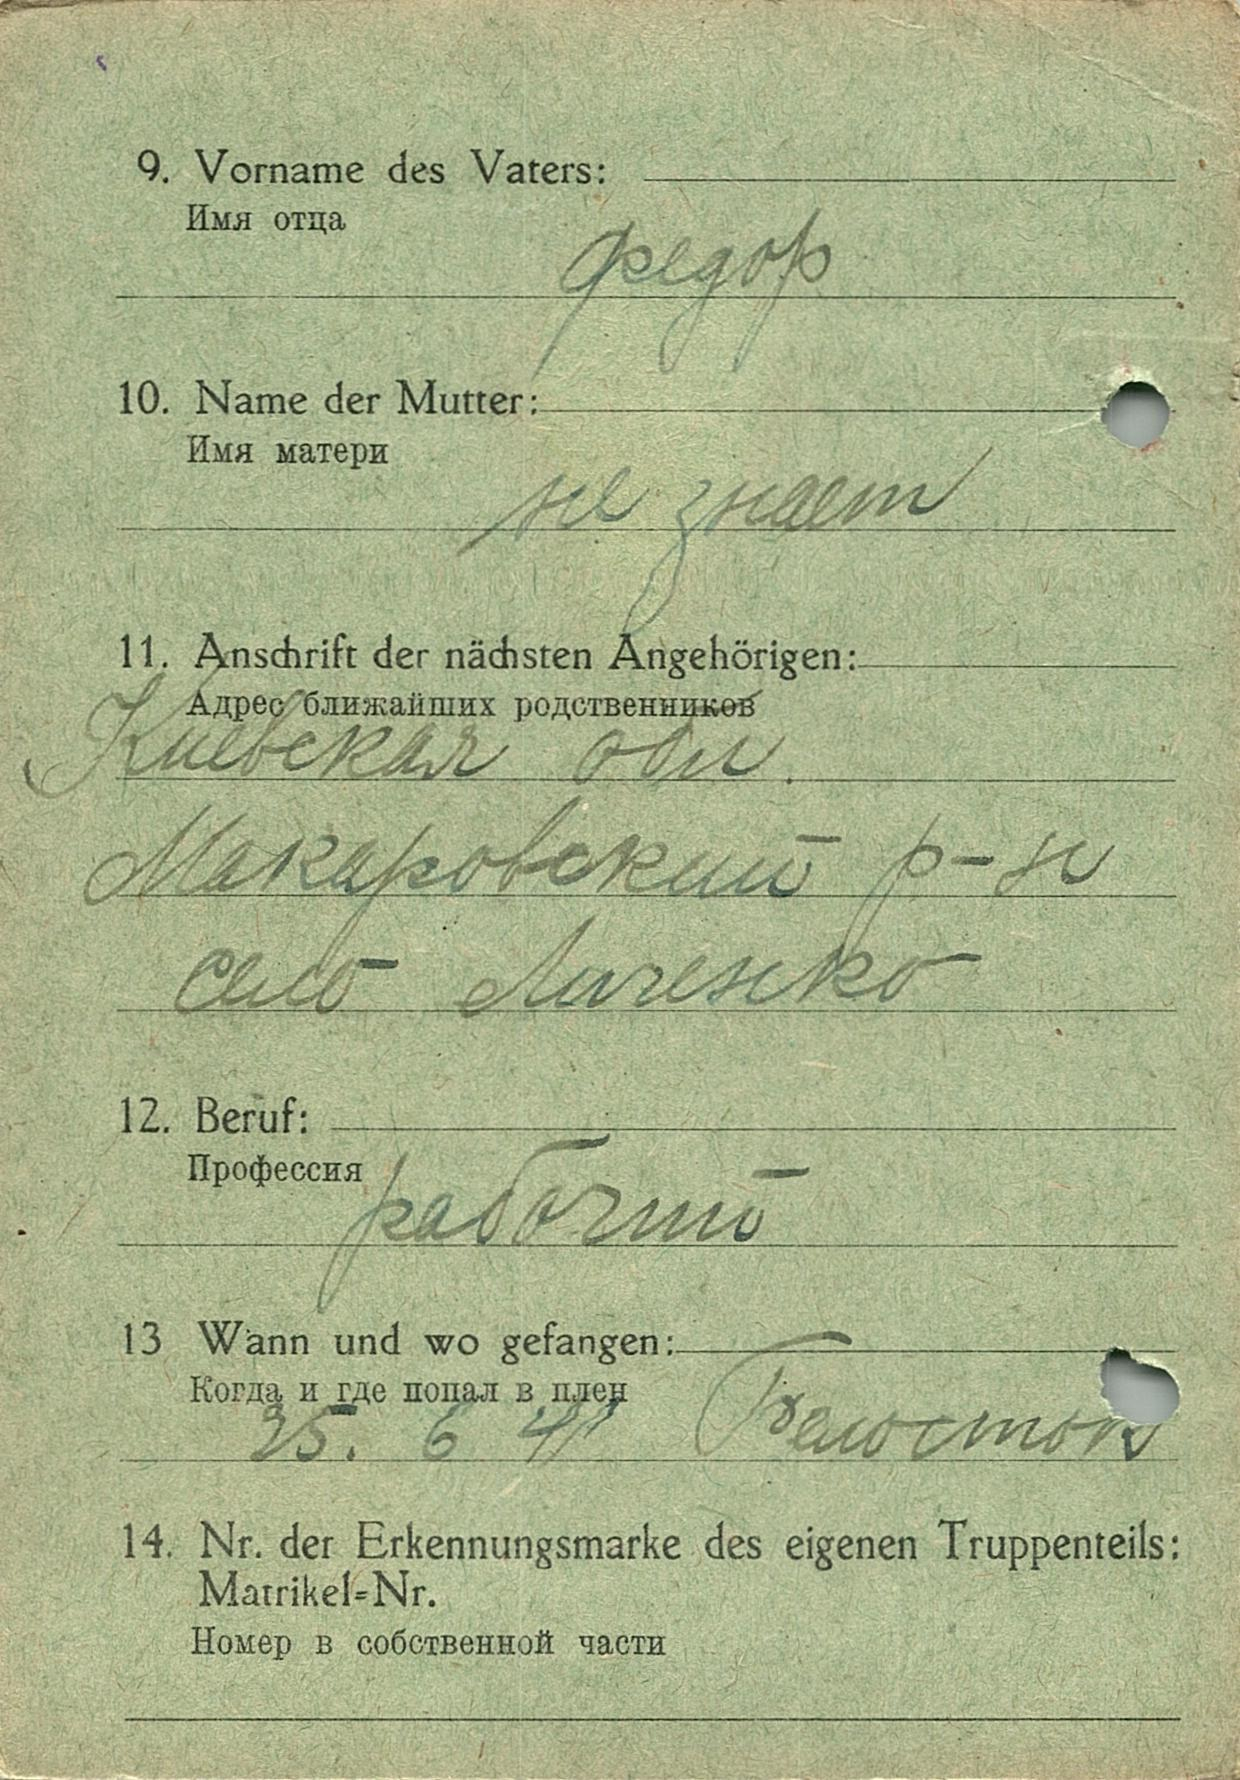 9. Vorname des Vaters:
Имя отца
Федор
10. Name der Mutter:
Имя матери
не знает
11. Anschrift der nächsten Angehörigen:
Адрес ближайших родственников
Киевская обл.
Макаровский р-н
село Личенко
12. Beruf:
Профессия
рабочий
13 Wann und wo gefangen:
Когда и где попал в плен
25. 6 41 Белосток
14. Nr. der Erkennungsmarke des eigenen Truppenteils:
Matrikel-Nr.
Номер в собственной части